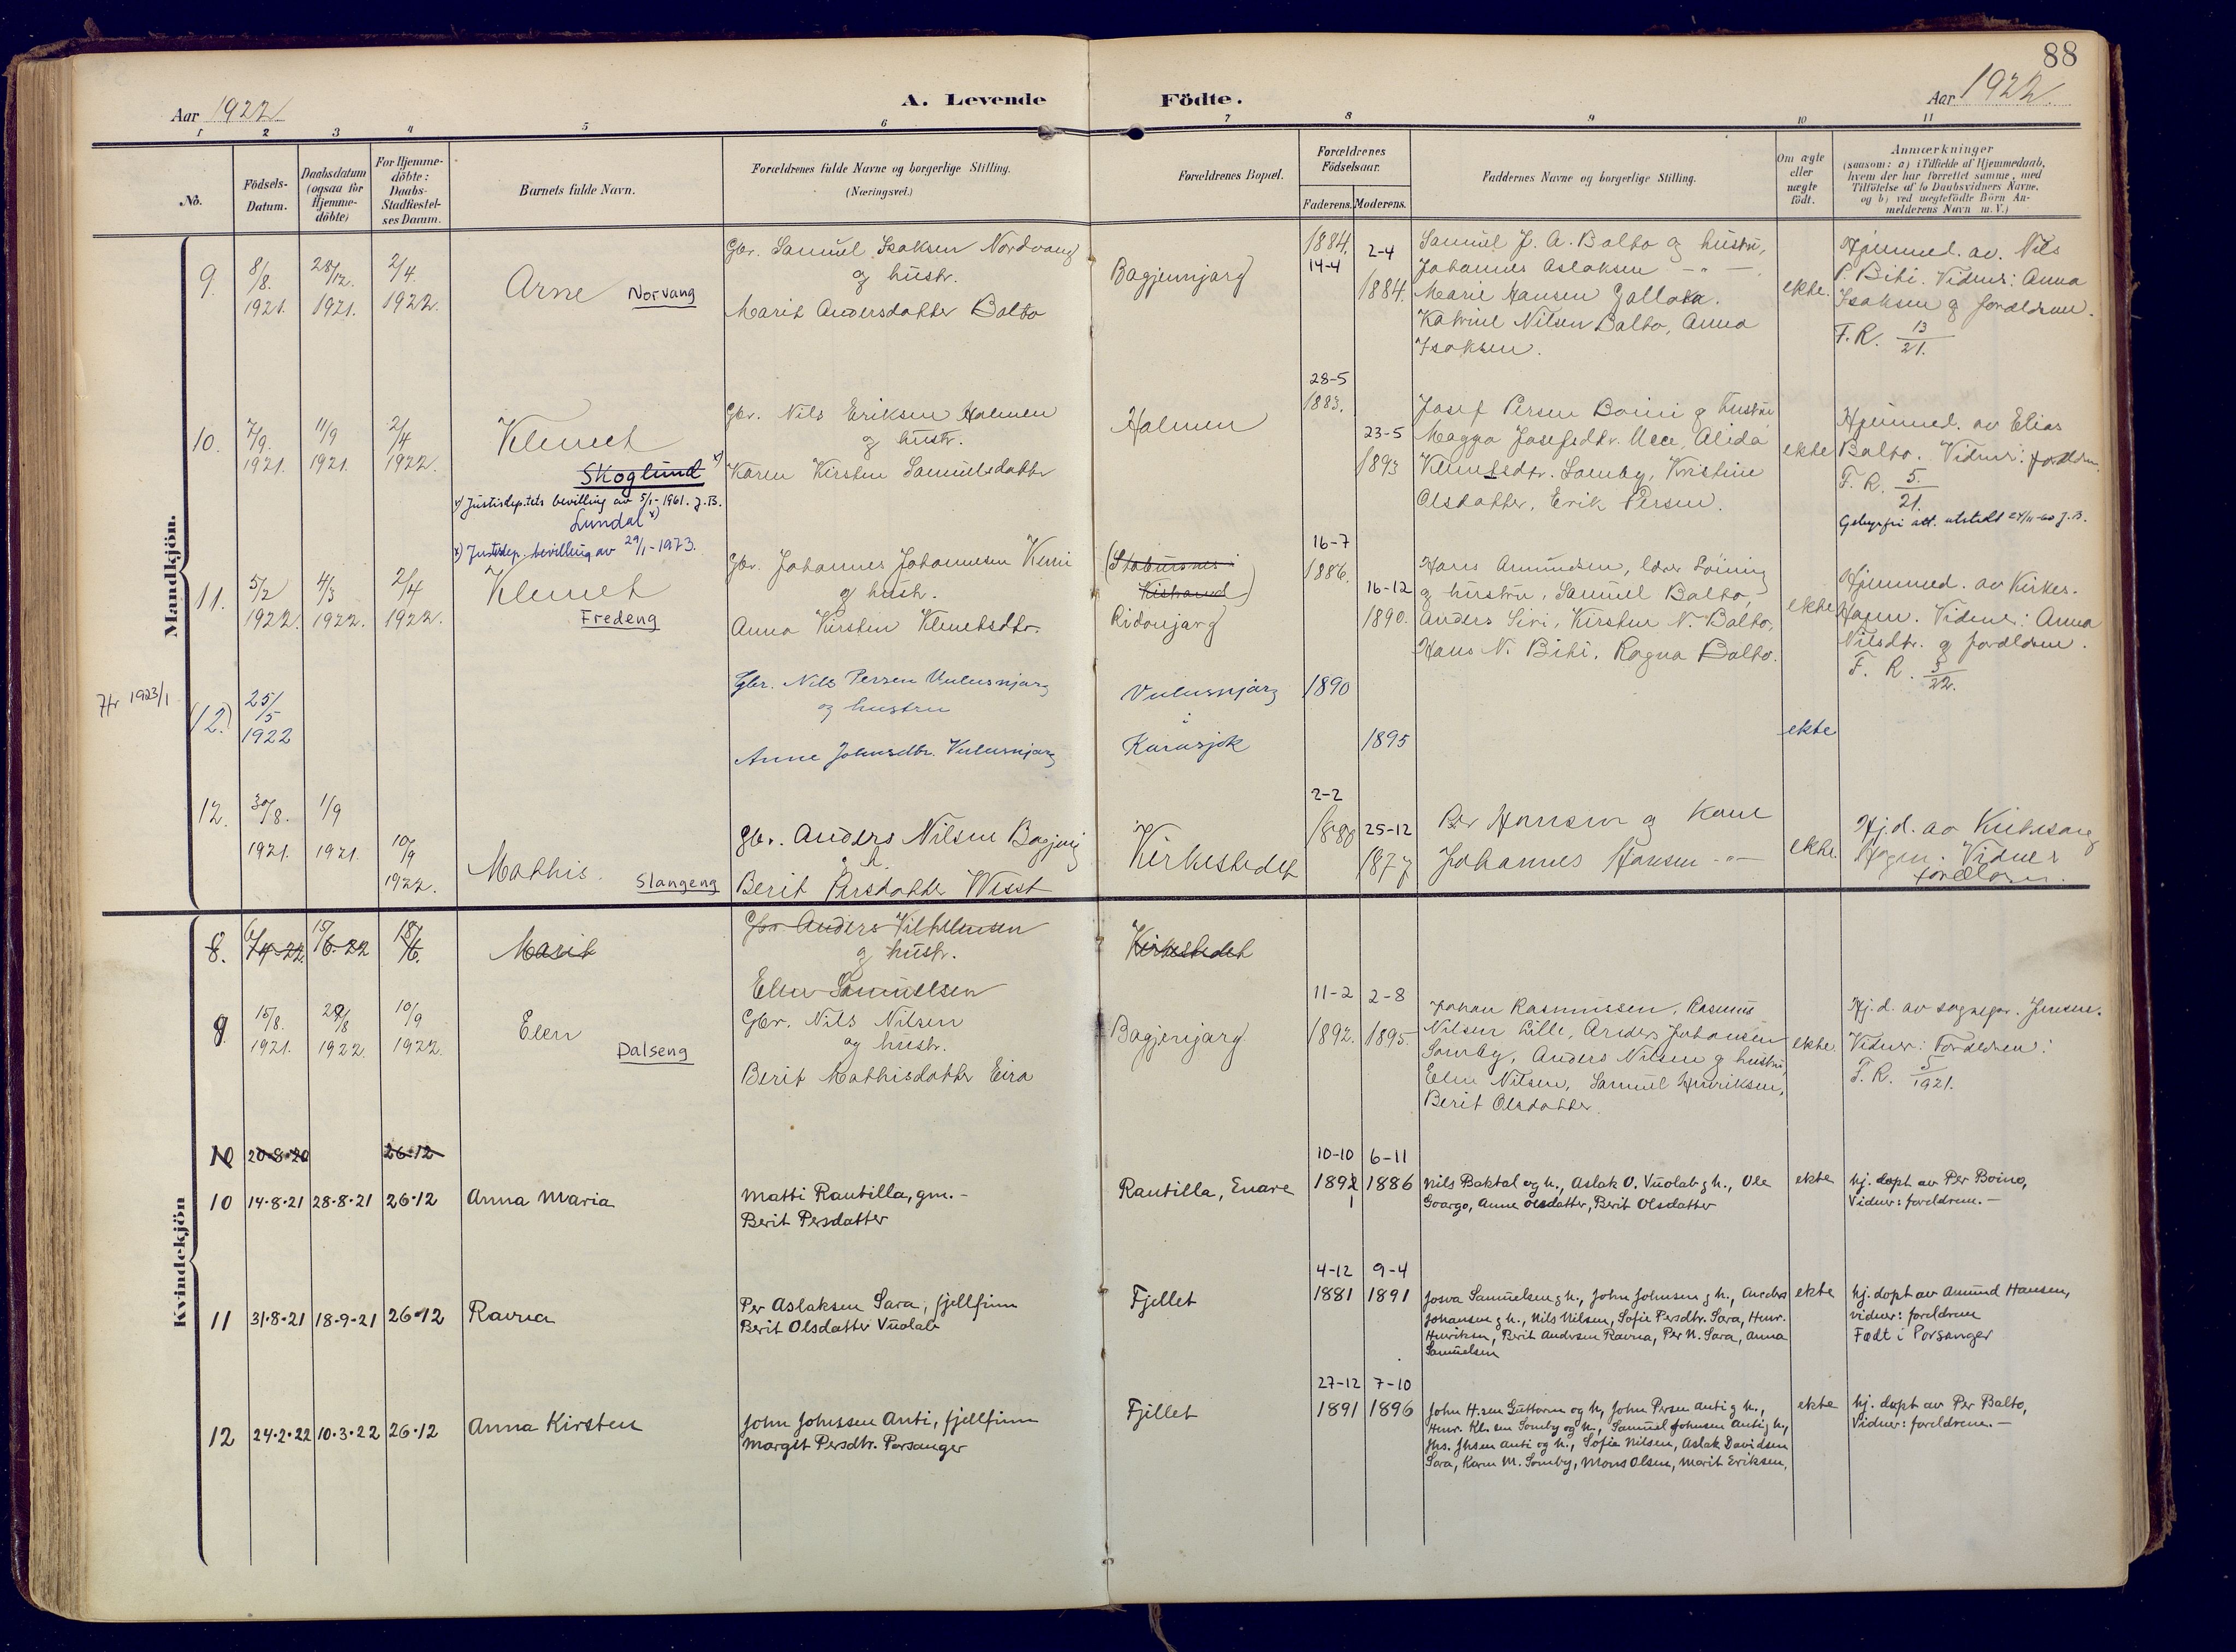 88
Aar 1922
A. Levende Födte.
Aar 1922.
1 2 3 4 5 6 7 8 9 10 11
No.
Födsels-Datum.
Daabsdatum (ogsaa for Hjemme-döbte)
For Hjemme-döbte: Daabs-Stadfæstel-ses Datum.
Barnets fulde Navn.
Forældrenes fulde Navne og borgerlige Stilling. (Næringsvei.)
Forældrenes Bopæl.
Forældrenes Födselsaar.
Faderens. Moderens.
Faddernes Navne og borgerlige Stilling.
Om ægte eller uægte födt.
Anmærkninger
(saasom: a) i Tilfælde af Hjemmedaab,
hvem der har forrettet samme, med
Tilföielse af to Daabsvidners Navne.
og b) ved uægtefödte Börn An-
melderens Navn m. V.)
Mandkjön.
9. 8/8. 1921. 28/12. 1921. 2/4. 1922.
Arne Norvang
Gbr. Samuel Isaksen Nordvang
og hustr.
Marit Andersdatter Balto
Bagjenjarg
1884. 14-4
2-4 1884.
Samuel J. A. Balto og hustru,
Johannes Aslaksen - " -
Marie Hansen Gallokn.
Katrine Nilsen Balto, Anna
Isaksen.
ekte.
Hjemmed. av. Nils
P. Biti. Vidner: Anna
Isaksen og forældrene.
F. R. 13/21.
10. 7/9. 1921. 11/9 1921. 2/4 1922.
Klemet
Skoglund x)
x) Justisdep.tets bevilling av 5/1-1961. J.B.
Lundal x)
x) Justisdep. bevilling av 29/1-1973.
Gbr. Nils Eriksen Halmen
og hustr.
Karen Kirsten Samuelsdatter
Halmen
28-5 1883.
23-5 1893
Josef Persen Boini og hustru
Magga Josefsdtr. Utce, Alida
Klemetsdtr. Somby, Kristine
Olsdatter, Erik Persen.
ekte
Hjemmed. av Elias
Balto. Vidner: forældr.
F. R. 5./21.
Gebyrfri att. utstedt 24/11-60 J.B.
11. 5/2 1922. 4/3 1922. 2/4 1922.
Klemet
Fredeng
Gbr. Johannes Johannesen Kemi
og hustr.
Anna Kirsten Klemetsdtr.
(Stabursnes i
Kistrand)
Ridonjarg
16-7 1886.
16-12 1890.
Hans Amundsen, lærer Löining
og hustru, Samuel Balto,
Anders Siri, Kirsten N. Balto,
Hans N. Biti, Ragna Balto.
ekte
Hjemmed. av Kirkes.
Hagen. Vidner: Anna
Nilsdtr. og forældrene.
F. R. 5/22.
Jfr 1923/1
(12.) 25/5 1922
Gbr. Nils Persen Vulusnjarg
og hustru
Anne Johnsdtr. Vulusnjarg
Vulusnjarg
i
Karasjok
1890
1895
ekte
12. 30/8. 1921. 1/9 1921. 10/9 1922.
Mathis. Slangeng
Gbr. Anders Nilsen Bagjenj
o. h.
Berit Persdatter Wisst
Kirkestedet
2-2 1880
25-12 1877
Per Hansen og Kone
Johannes Hansen - " -
ekte.
Hj.d. av Kirkesang
Hagen. Vidner
forældrene.
Kvindekjön
8. 6/4-22. 15/6-22 18/6.
Marit
Gbr. Anders Vilhelmsen
og hustr.
Elen Samuelsen
Kirkestedet
9. 15/8. 1921. 29/8 1922. 10/9 1922.
Elen
Dalseng
Gbr. Nils Nilsen
og hustr.
Berit Mathisdatter Eira
Bagjenjarg
11-2 1892.
2-8 1895
Johan Rasmussen, Rasmus
Nilsen Lille, Anders Johansen
Somby, Anders Nilsen og hustru,
Elen Nilsen, Samuel Henriksen,
Berit Olsdatter.
ekte.
Hj.d. av sogneprs. Jensen.
Vidner: Forældrene:
F. R. 5/1921.
10 20-8-20 26-12
10 14-8-21 28-8-21 26-12 Anna Maria
Matti Rautilla, gm. -
Berit Persdatter
Rautilla, Enare
10-10 6-11
1892 1886
1
Nils Baktal og h., Aslak O. Vuolab g h., Ole
Goargo, Anne Olsdatter, Berit Olsdatter
ekte
hj. døpt av Per Boino,
Vidner: foreldrene. -
11 31-8-21 18-9-21 26-12 Ravna
Per Aslaksen Sara, fjellfinn
Berit Olsdatter Vuolab
Fjellet
4-12 9-4
1881 1891
Josva Samuelsen g h., John Johnsen g h., Anders
Johansen g h., Nils Nilsen, Sofie Persdtr. Sara, Henr.
Henriksen, Berit Andersen Ravna, Per N. Sara, Anna
Samuelsen
ekte
hj. døpt av Amund Hansen,
vidner: foreldrene
Født i Porsanger
12 24-2-22 10-3-22 26-12 Anna Kirsten
John Johnssen Anti, fjellfinn
Margit Persdtr. Porsanger
Fjellet
27-12 7-10
1891 1896
John H.sen Guttorm og h, John Persen Anti g h.,
Henr. Kl.sen Somby og h., Samuel Johnsen Anti g h,
Jhs. Jhsen Anti og h., Sofie Nilsen, Aslak Davidsen
Sara, Karen M. Somby, Mons Olsen, Marit Eriksen.
ekte
hj. døpt av Per Balto,
Vidner: foreldrene. -